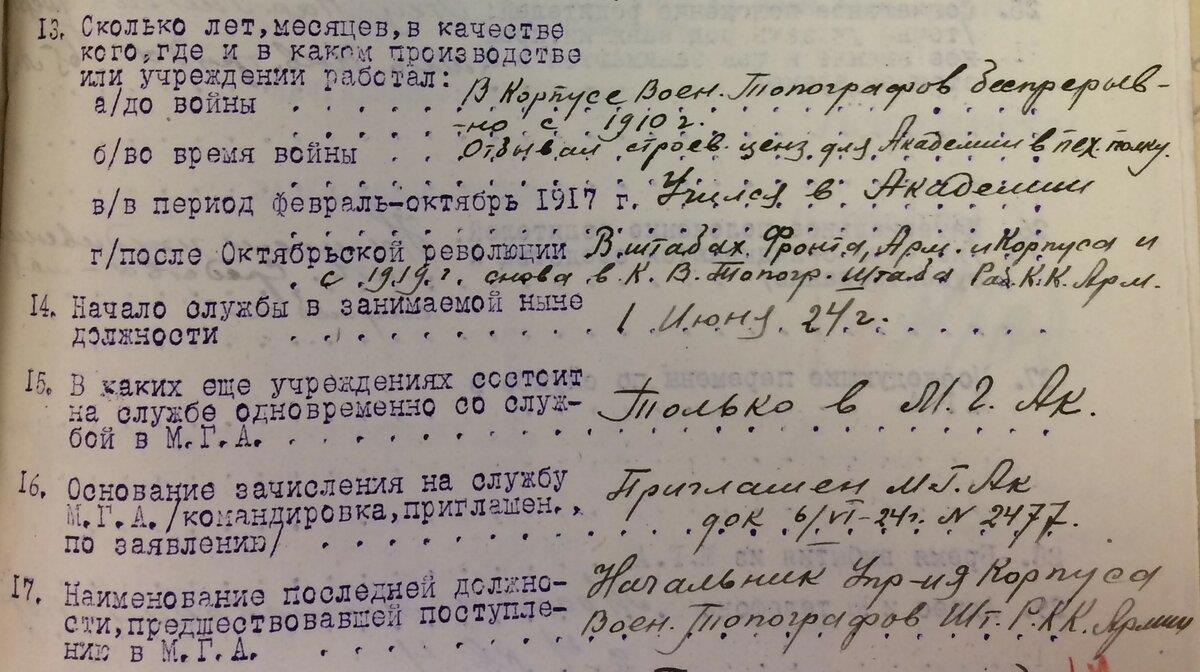 13. Сколько лет, месяцев, в качестве
кого, где и в каком производстве
или учреждении работал:
а/до войны . . . . . В Корпусе Воен. Топографов беспрерыв-
-но с 1910 г.
б/во время войны . . Отбывал строев. ценз для Академии в пех. полку.
в/в период февраль-октябрь 1917 г. Учился в Академии
г/после Октябрьской революции В штабах Фронта, Арм. и Корпуса и
с 1919 г. снова в К. В. Топогр. Штаба Раб. К. К. Арм.
14. Начало службы в занимаемой ныне
должности . . . . . . . . 1 Июня 24 г.
15. В каких еще учреждениях состоит
на службе одновременно со служ-
бой в М.Г.А. . . . . . . Только в М. Г. Ак.
16. Основание зачисления на службу
М.Г.А./командировка, приглашен., Приглашен М.Г. Ак
по заявлению/ . . . . . . док 6/VI-24г. N 2477.
17. Наименование последней должно- Начальник Упр-ия Корпуса
сти, предшествовавшей поступле- Воен. Топографов Шт. Р.К.К. Армии
нию в М.Г.А. . . . . . .